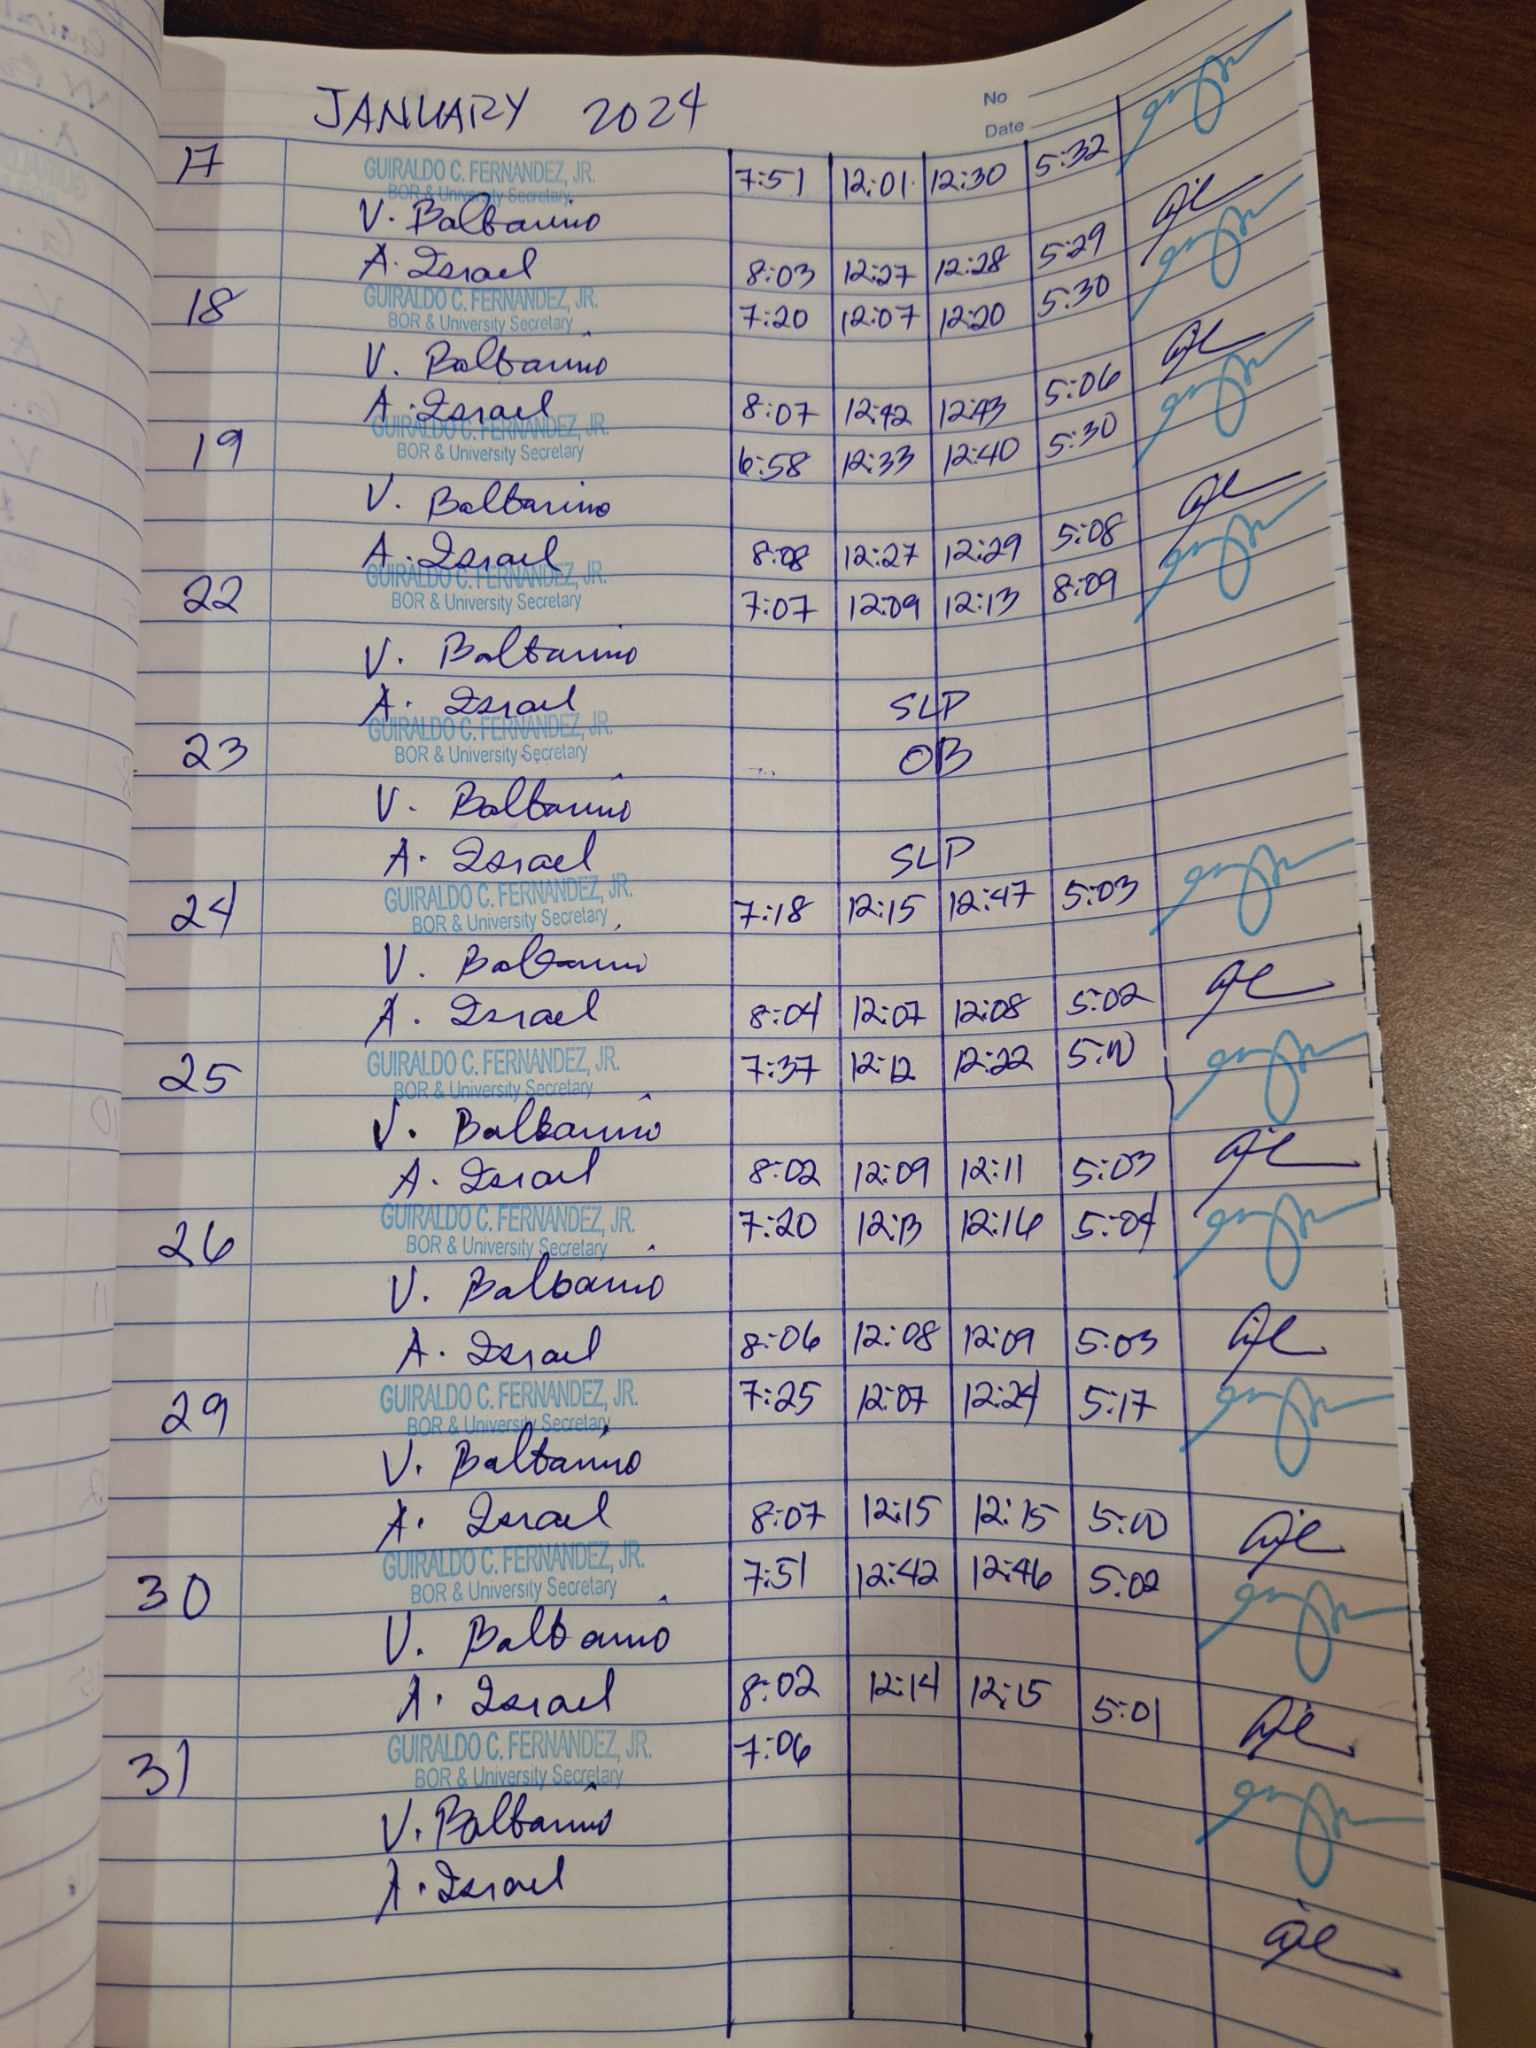 JANUARY 2024
No
Date
17 GUIRALDO C. FERNANDEZ, JR. 7:51 12:01 12:30 5:32
BOR & University Secretary
V. Balbarino
A. Israel 8:03 12:27 12:28 5:29
18 GUIRALDO C. FERNANDEZ, JR. 7:20 12:07 12:20 5:30
BOR & University Secretary
V. Balbarino
A. Israel 8:07 12:42 12:43 5:06
19 GUIRALDO C. FERNANDEZ, JR. 6:58 12:33 12:40 5:30
BOR & University Secretary
V. Balbarino
A. Israel 8:08 12:27 12:29 5:08
22 GUIRALDO C. FERNANDEZ, JR. 7:07 12:09 12:13 8:09
BOR & University Secretary
V. Balbarino
A. Israel SLP
23 GUIRALDO C. FERNANDEZ, JR. OB
BOR & University Secretary
V. Balbarino
A. Israel SLP
24 GUIRALDO C. FERNANDEZ, JR. 7:18 12:15 12:47 5:03
BOR & University Secretary
V. Balbarino
A. Israel 8:04 12:07 12:08 5:02
25 GUIRALDO C. FERNANDEZ, JR. 7:37 12:12 12:22 5:00
BOR & University Secretary
V. Balbarino
A. Israel 8:02 12:09 12:11 5:03
26 GUIRALDO C. FERNANDEZ, JR. 7:20 12:13 12:16 5:04
BOR & University Secretary
V. Balbarino
A. Israel 8:06 12:08 12:09 5:03
29 GUIRALDO C. FERNANDEZ, JR. 7:25 12:07 12:24 5:17
BOR & University Secretary
V. Balbarino
A. Israel 8:07 12:15 12:15 5:00
30 GUIRALDO C. FERNANDEZ, JR. 7:51 12:42 12:46 5:02
BOR & University Secretary
V. Balbarino
A. Israel 8:02 12:14 12:15 5:01
31 GUIRALDO C. FERNANDEZ, JR. 7:06
BOR & University Secretary
V. Balbarino
A. Israel